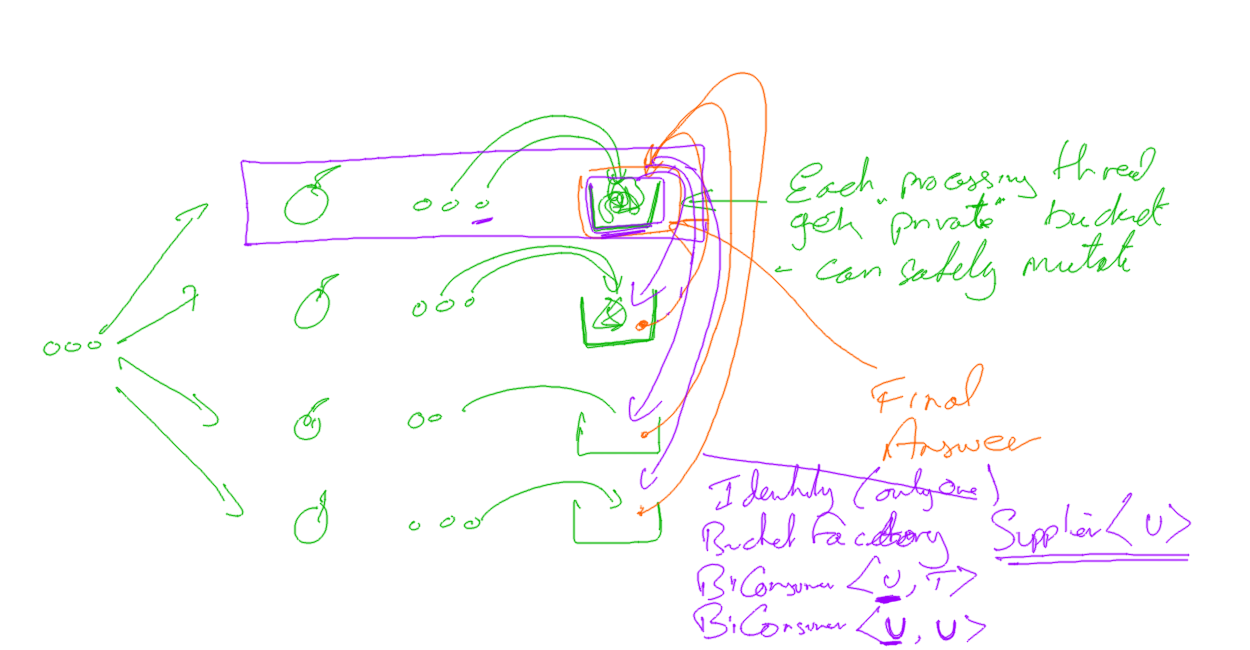 Each processing thread
gets "private" bucket
- can safely mutate
Final
Answer
Identity (only one)
Bucket Factory Supplier<U>
BiConsumer <U, T>
BiConsumer <U, U>